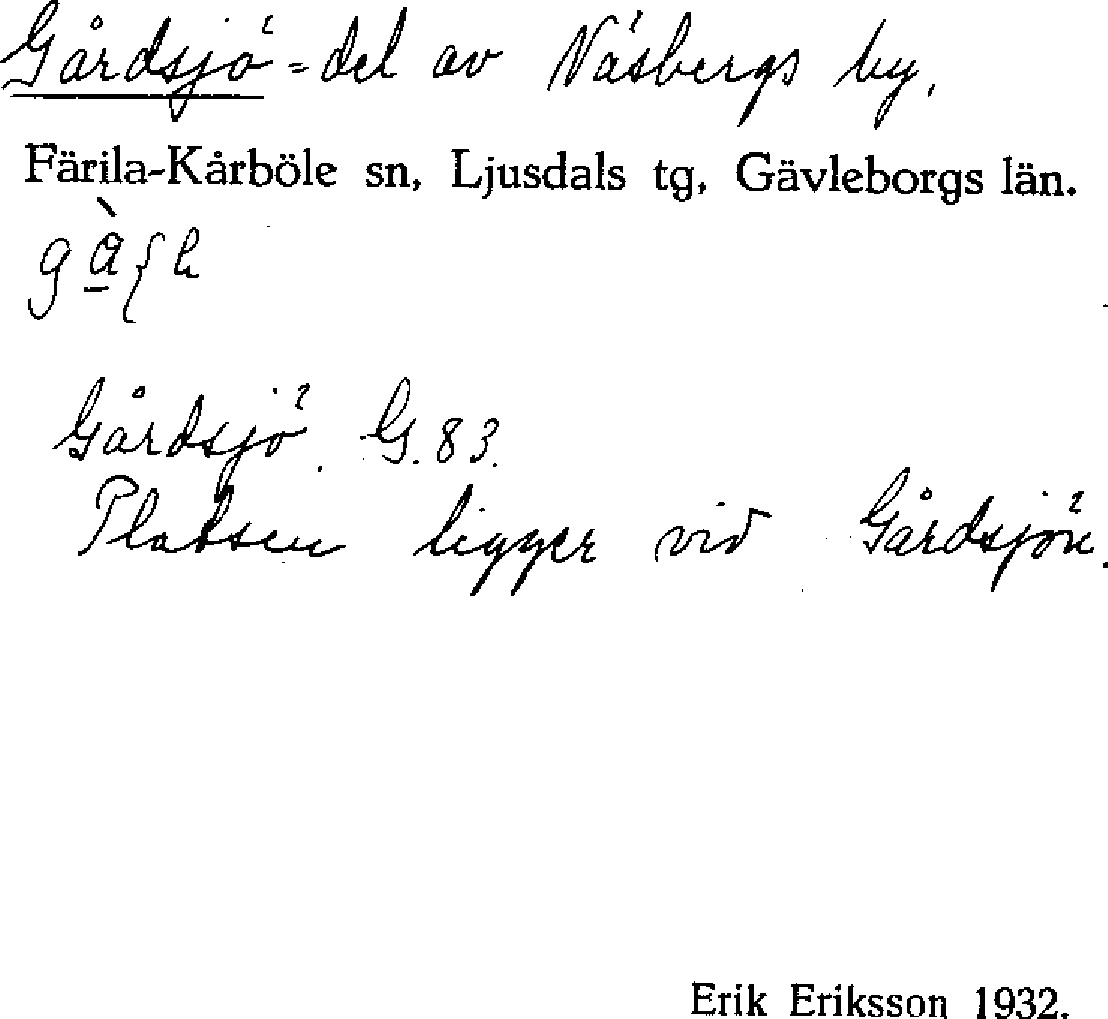 Gårdsjö = del av Näsbergs by,
Färila-Kårböle sn, Ljusdals tg, Gävleborgs län.
Gårdsjö. G. 83.
Platsen ligger vid Gårdsjön.
Erik Eriksson 1932.